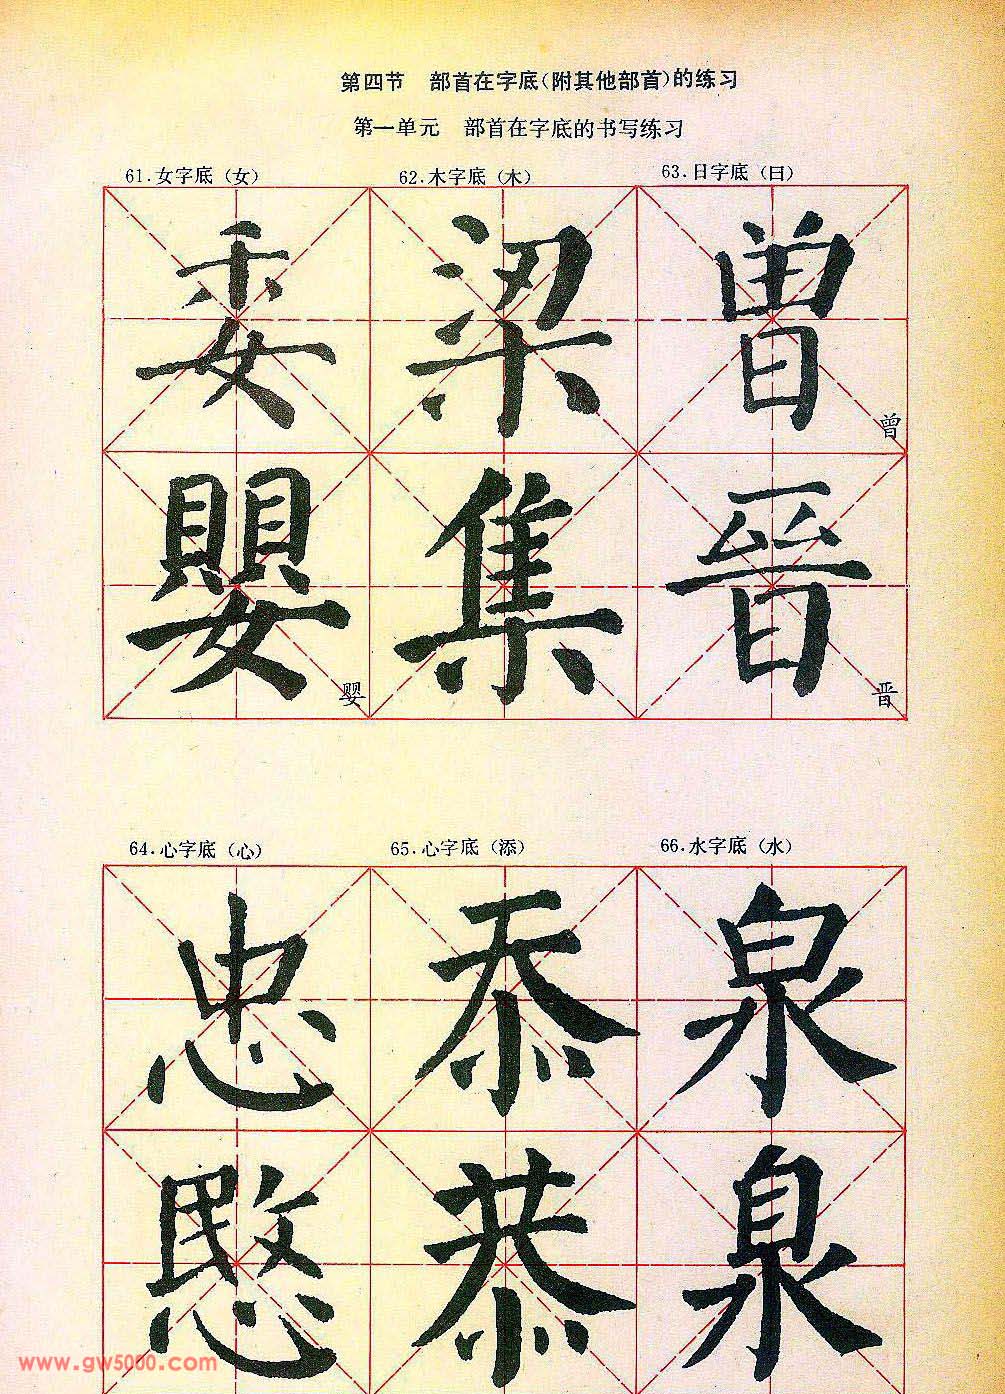 第四节 部首在字底(附其他部首)的练习
第一单元 部首在字底的书写练习
61.女字底(女) 62.木字底(木) 63.日字底(曰)
委 梁 曾 曾
嬰 婴 集 晉 晋
64.心字底(心) 65.心字底(添) 66.水字底(水)
忠 忝 泉
愍 恭 泉
www.gw5000.com